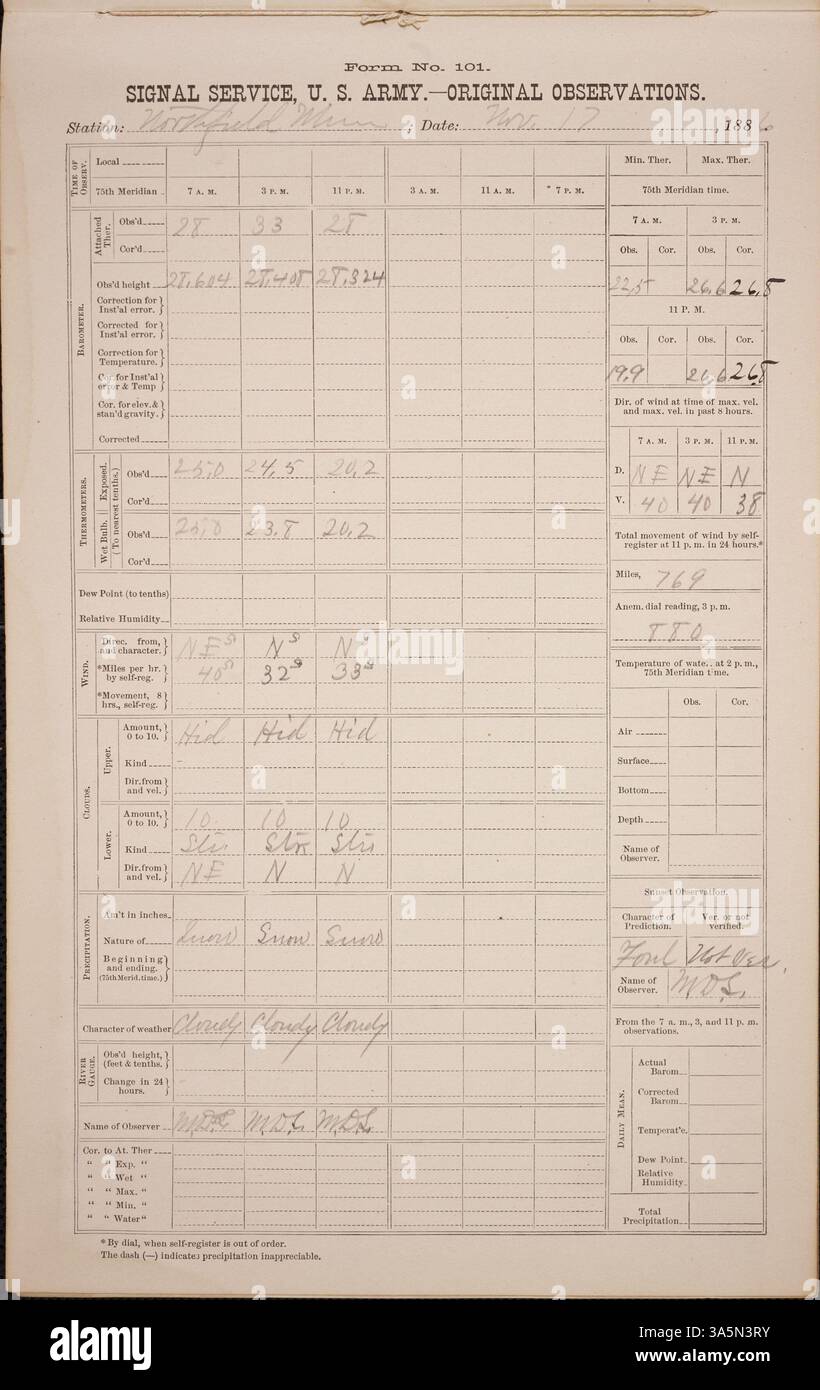 Form No. 101.
SIGNAL SERVICE, U. S. ARMY.—ORIGINAL OBSERVATIONS.
Station: Northfield Minn ; Date: Nov. 17 , 1886.
TIME OF OBSERV.
Local
75th Meridian 7 A. M. 3 P. M. 11 P. M. 3 A. M. 11 A. M. * 7 P. M.
BAROMETER.
Attached Ther.
Obs'd 28 33 28
Cor'd
Obs'd height 28.604 28.408 28.324
Correction for Inst'al error.
Corrected for Inst'al error.
Correction for Temperature.
Cor. for Inst'al error & Temp
Cor. for elev. & stan'd gravity.
Corrected
THERMOMETERS.
Wet Bulb. | Exposed.
(To nearest tenths.)
Obs'd 25.0 24.5 20.2
Cor'd
Obs'd 25.0 23.8 20.2
Cor'd
Dew Point (to tenths)
Relative Humidity
WIND.
Direc. from, and character. NE N N
*Miles per hr. by self-reg. 40 32 33
*Movement, 8 hrs., self-reg.
CLOUDS.
Upper.
Amount, 0 to 10. Hid Hid Hid
Kind
Dir. from and vel.
Lower.
Amount, 0 to 10. 10 10 10
Kind
Dir. from and vel. NE N N
PRECIPITATION.
Am't in inches
Nature of Snow Snow Snow
Beginning and ending. (75th Merid. time.)
Character of weather Cloudy Cloudy Cloudy
RIVER GAUGE.
Obs'd height, (feet & tenths.)
Change in 24 hours.
Name of Observer M.D.L. M.D.L. M.D.L.
Cor. to At. Ther
" " Exp. "
" " Wet "
" " Max. "
" " Min. "
" " Water"
Min. Ther. Max. Ther.
75th Meridian time.
7 A. M. 3 P. M.
Obs. Cor. Obs. Cor.
22.5 26.6 26.8
11 P. M.
Obs. Cor. Obs. Cor.
19.9 26.6 26.8
Dir. of wind at time of max. vel. and max. vel. in past 8 hours.
7 A. M. 3 P. M. 11 P. M.
D. NE NE N
V. 40 40 38
Total movement of wind by self-register at 11 p. m. in 24 hours.*
Miles, 769
Anem. dial reading, 3 p. m.
880
Temperature of water at 2 p. m., 75th Meridian time.
Obs. Cor.
Air
Surface
Bottom
Depth
Name of Observer.
Sunset Observation.
Character of Prediction. Ver. or not verified.
Foul Not Ver.
Name of Observer. M.D.L.
From the 7 a. m., 3, and 11 p. m. observations.
DAILY MEAN.
Actual Barom.
Corrected Barom.
Temperat'e.
Dew Point.
Relative Humidity.
Total Precipitation.
* By dial, when self-register is out of order.
The dash (—) indicates precipitation inappreciable.
alamy
Image ID: 3A5N3RY
www.alamy.com